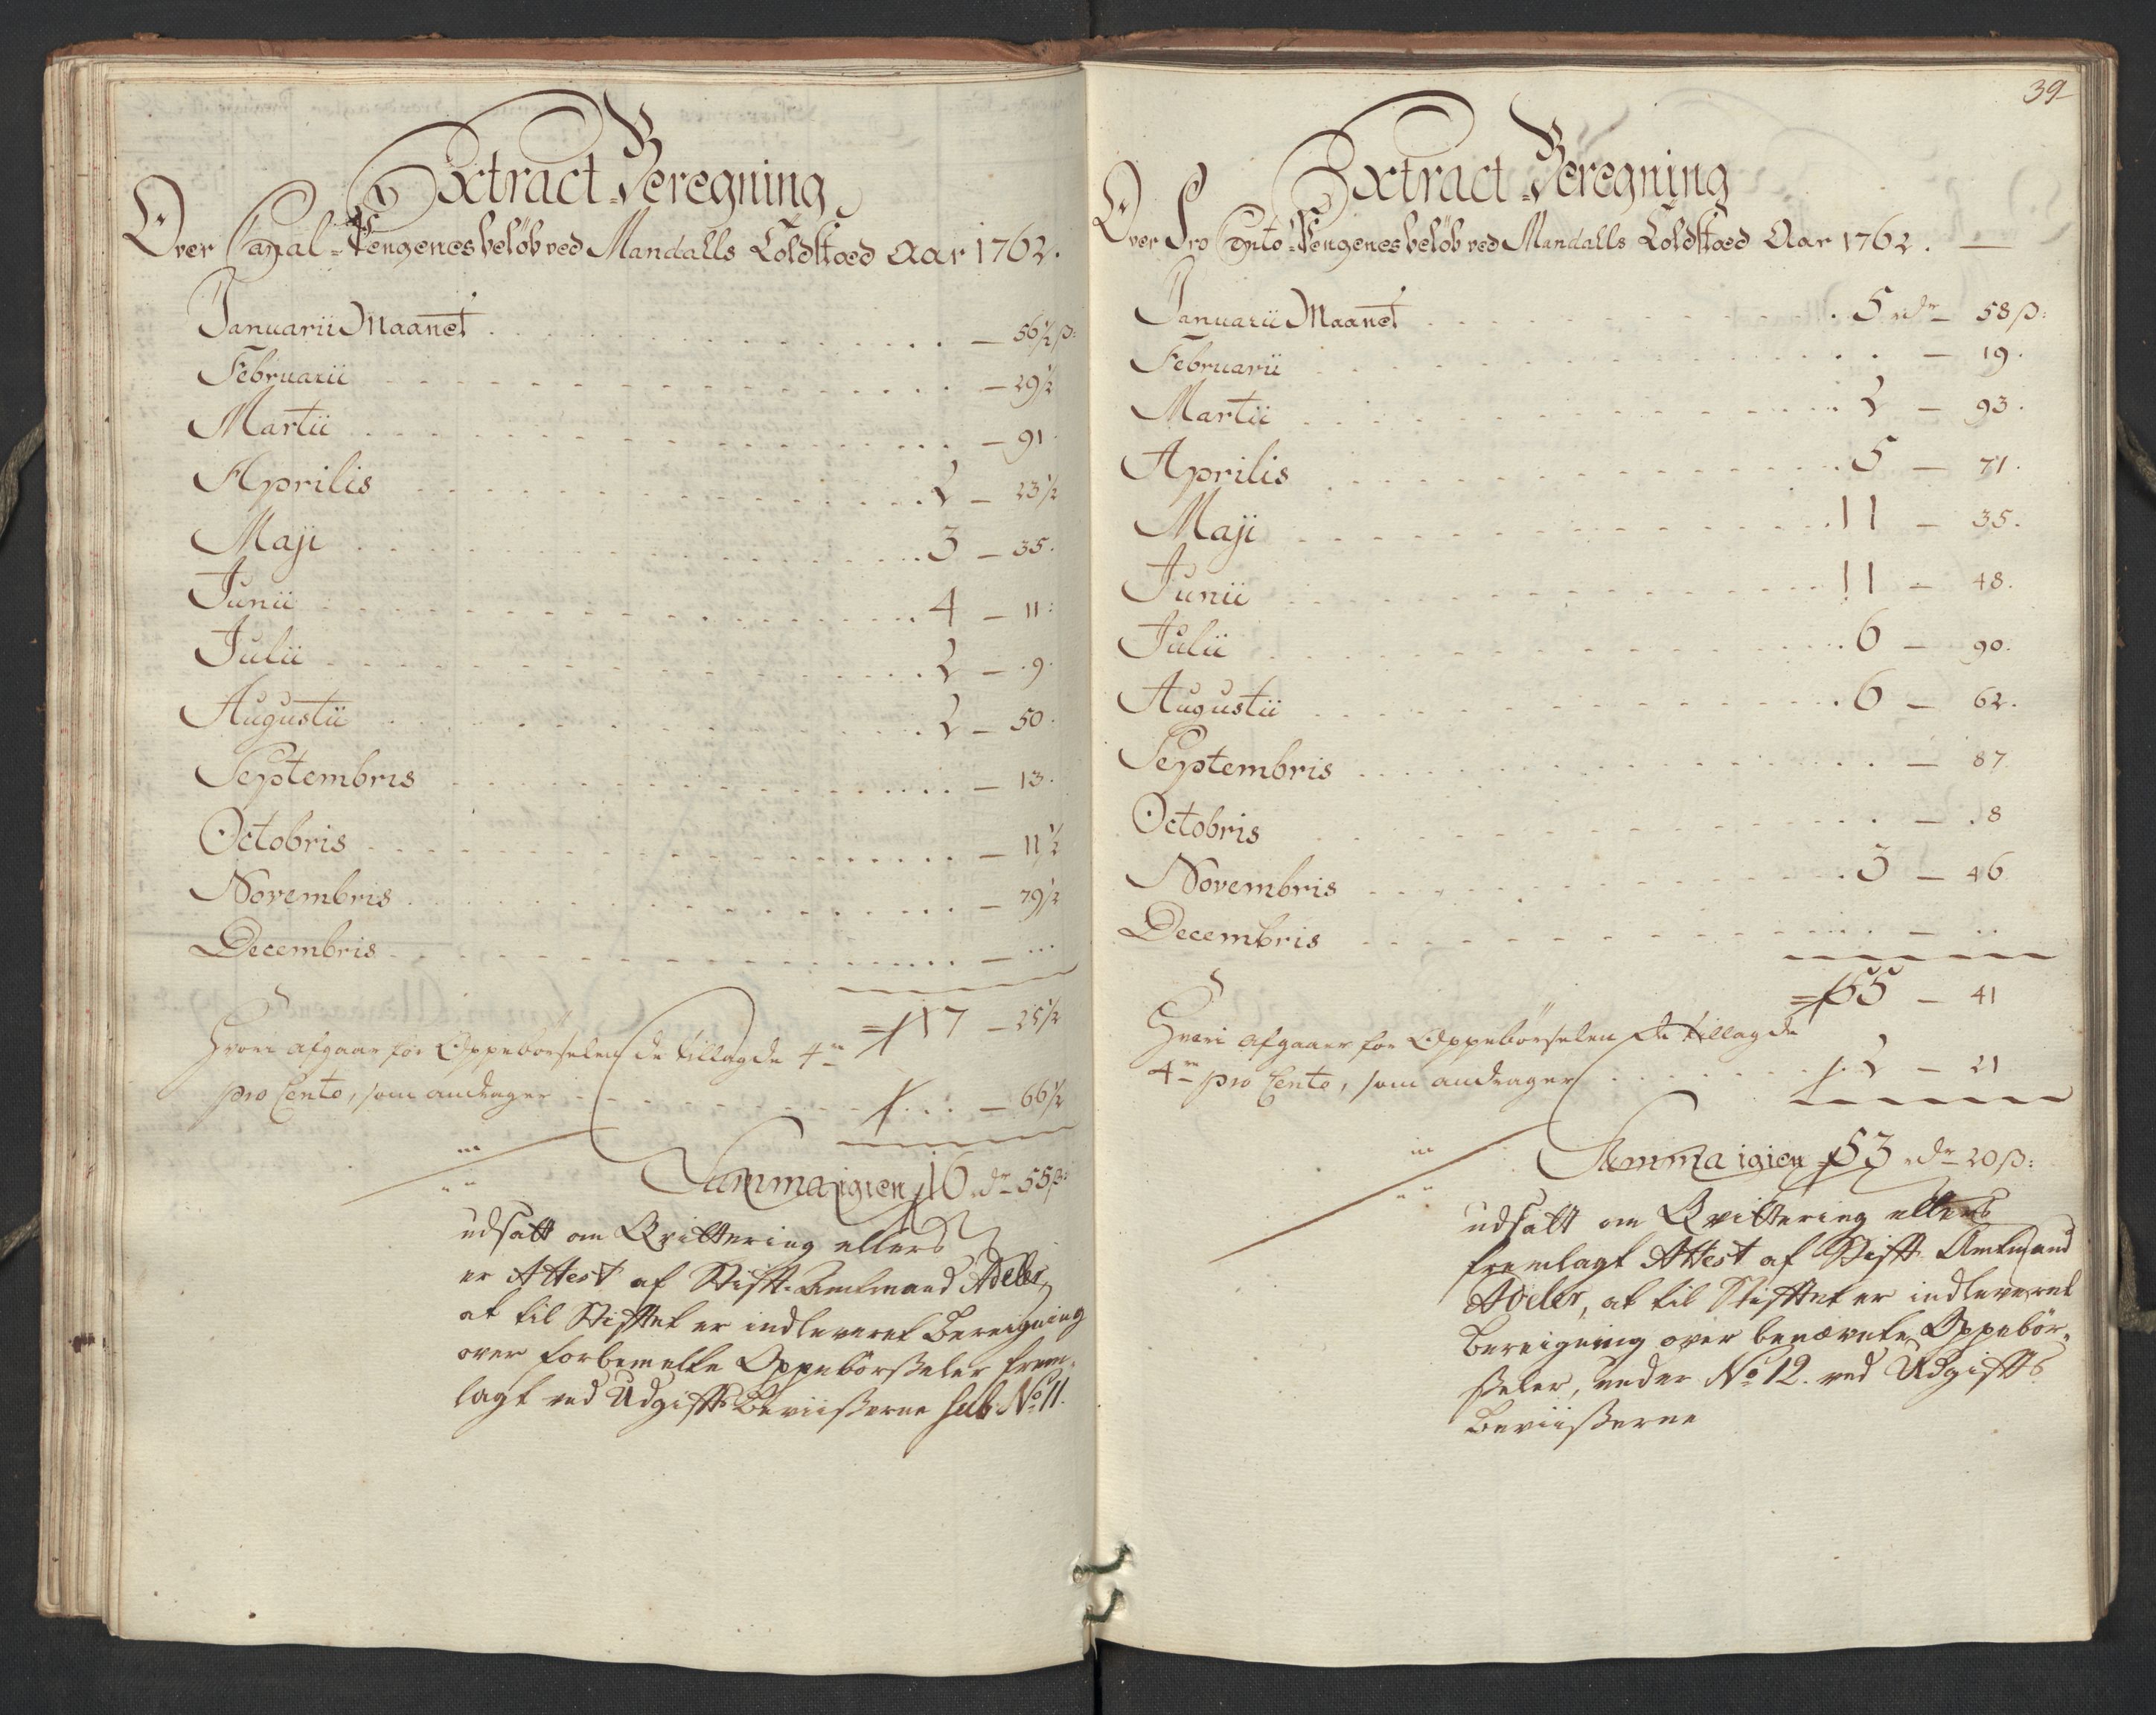 Extract Beregning
Over Canal-Pengenes beløb ved Mandalls Toldstæd Aar 1762.
Januarii Maanet - 56½ ß:
Februarii - 29½
Martii - 91
Aprilis 2 - 23½
Maji 3 - 35.
Junii 4 - 11:
Julii 2 - 9.
Augustii 2 - 50.
Septembris - 13.
Octobris - 11½
Novembris - 79½
Decembris - ...
17 - 25½
Hvori afgaar for Oppebørselen de tillagde 4re
pro Cento, som andrager - 66½
Summa igien 16 rdr 55 ß:
udsatt om Qvittering ellers
er Attest af Stift-Amtmand Adeler
at til Stiftet er indleveret Bereigning
over forbemelte Oppebörßeler frem-
lagt ved Udgifts Beviißerne sub No 11.
39
Extract Beregning
Over Pro Cento-Pengenes beløb ved Mandalls Toldstæd Aar 1762.
Januarii Maanet 5 rdr 58 ß:
Februarii - 19.
Martii 2 - 93.
Aprilis 5 - 71.
Maji 11 - 35.
Junii 11 - 48.
Julii 6 - 90.
Augustii 6 - 62.
Septembris - 87
Octobris - 8
Novembris 3 - 46
Decembris - ..
55 - 41
Hvori afgaaer for Oppebörselen de tillagde
4re pro Cento, som andrager 2 - 21
Summa igien 53 rdr 20 ß:
udsatt om Qvittering ellers
fremlagt Attest af Stift Amtmand
Adeler, at til Stiftet er indleveret
Bereigning over benævnte Oppebör-
ßeler, under No 12. ved Udgifts
Beviißerne